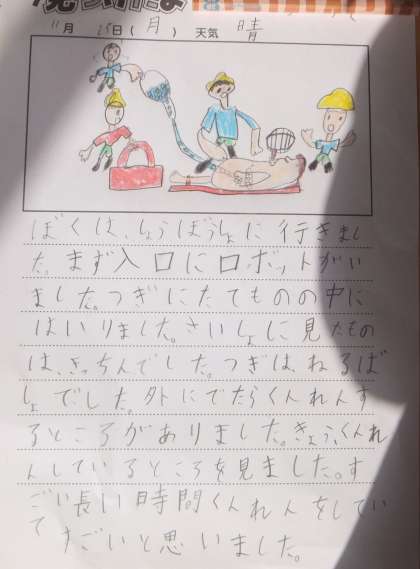 11月 日(月) 天気 晴
ぼくは、しょうぼうしょに行きまし
た。まず入口にロボットがい
ました。つぎにたてものの中に
はいりました。さいしょに見たもの
は、きっちんでした。つぎは、ねるば
しょでした。外にでたらくんれんす
るところがありました。きょう、くんれ
んしているところを見ました。す
ごい長い時間くんれんをしてい
て
すごいと思いました。